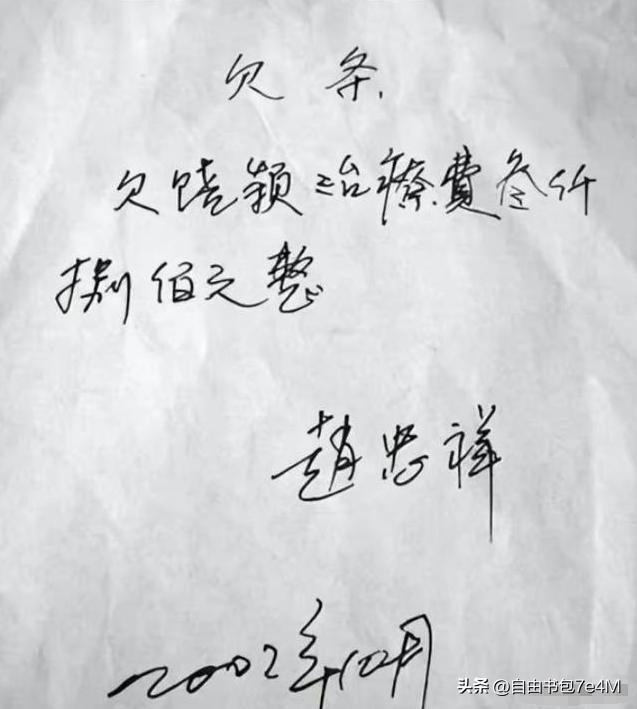 欠条
欠饶颖治療費叁仟
捌佰元整
趙忠祥
2002年10月
头条 @自由书包7e4M